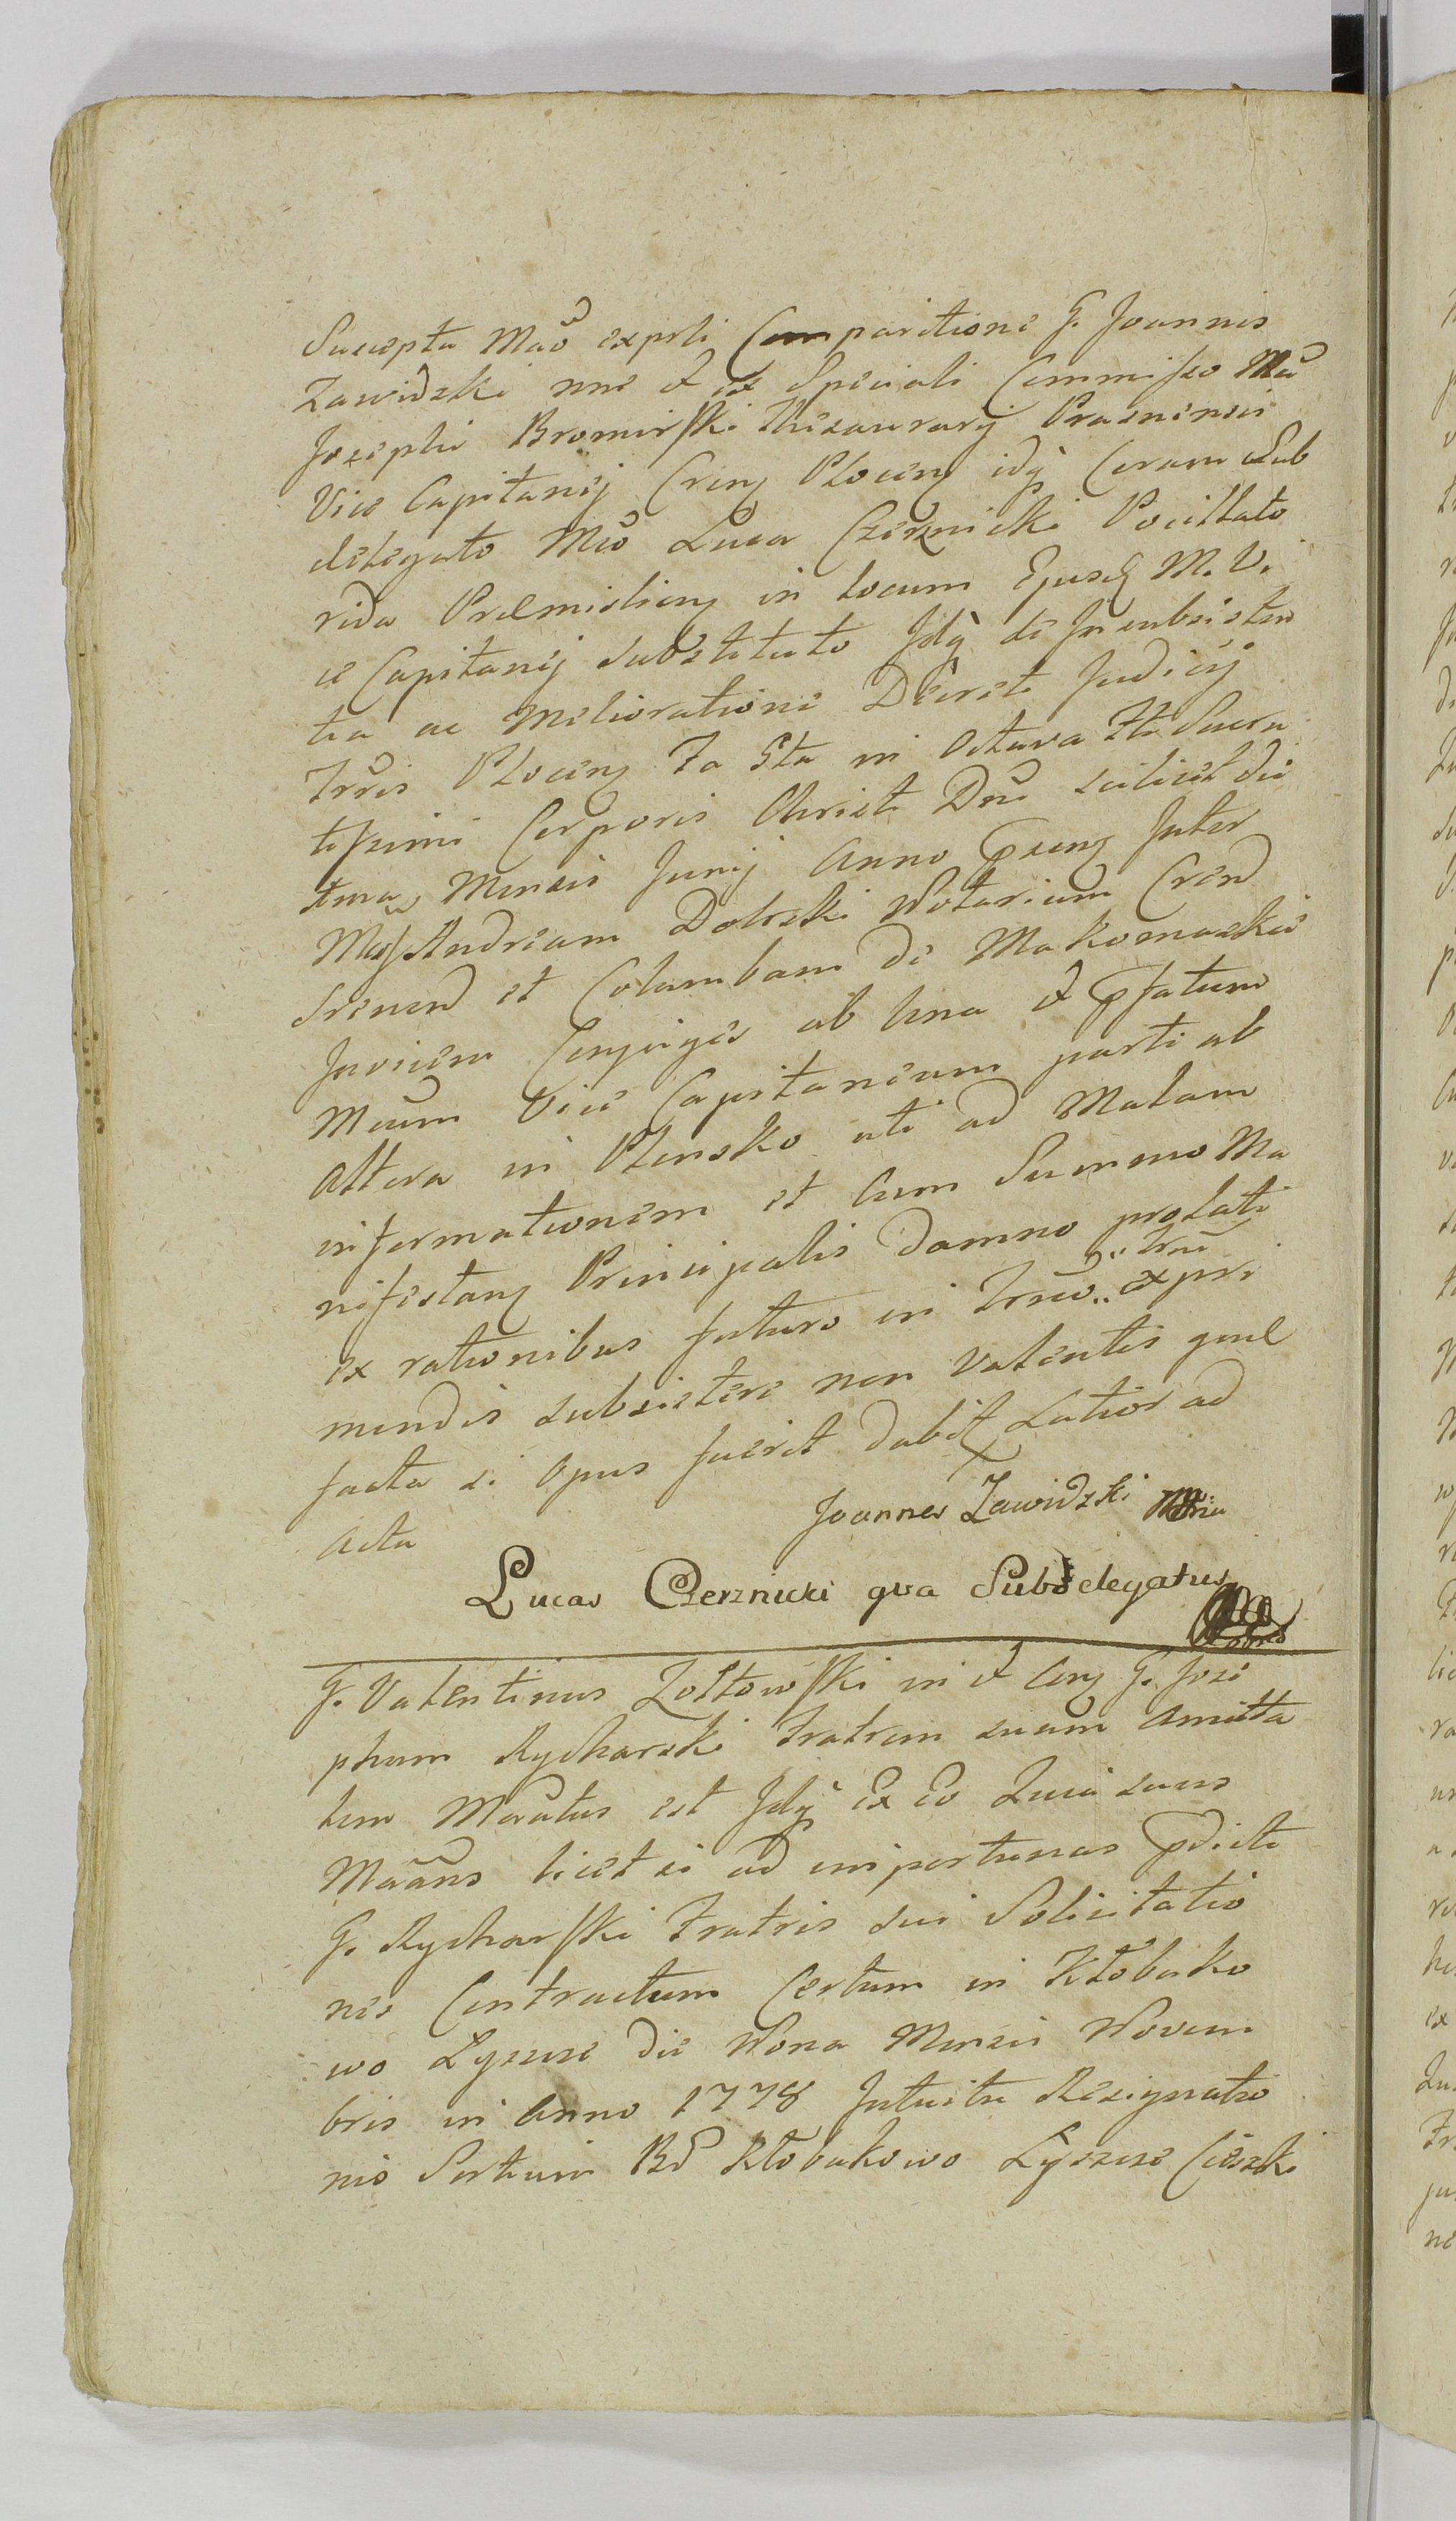 Suscepta Mãõ exprti Comparitione G. Joannis
Zawidzki nne & ex Speciali Commisso Mci
Josephi Bromirski Thesaurarij Prasnensis
Vice Capitanei Cren Plocen idq Coram Sub
delegato Mco Luca Czerznicki Pocillato
rida Præmislien in locum Ejusd M. Vi
ce Capitanej substituto Idq de Insubsisten
tia ac Melioratione Decreti Judicij
Trris Plocen Fa Sta in Octava Fti Sacra
tissimi Corporis Christi Dni scilicet die
tma Mensis Junij Anno pseng Inter
Mcos Andream Dobrski Notarium Crend
Srenen et Columbam de Makomaskie
Invicem Conjuges ab Una & pfatum
Mcum Vice Capitaneum parti ab
Altera in Plonsko uti ad Malam
informationem et Cum Summo Ma
nifestan Principalis Damno prolati
ex rationibus futuro in Trmo trni expri
mendis subsistere non Valentis quæ
facta si Opus fuerit dabit Latior ad
Acta
Joannes Zawidzki Mpria
Lucas Czerznicki qua Subdelegatus
G. Valentinus Zołtowski in & Con G. Jose
phum Rycharski Fratrem suum Amitta
lem Mãatus est Idq Ex Eo Quia suus
Mãans licet si ad importunas pdicti
G. Rycharski Fratris sui Solicitatio
nes Contractum Certum in Kłobuko
wo Lyszeze die Nona Mensis Novem
bris in Anno 1778 Intuitu Resignatio
nis Sortium Bd Kłobukowo Lyszeze Cieszki